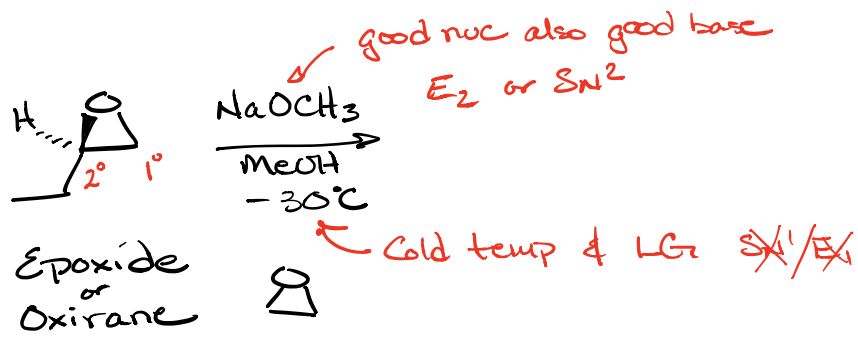 good nuc also good base
E2 or SN2
NaOCH3
MeOH
-30°C
H
O
2° 1°
Cold temp & LG SN1/E1
Epoxide
or
Oxirane
O